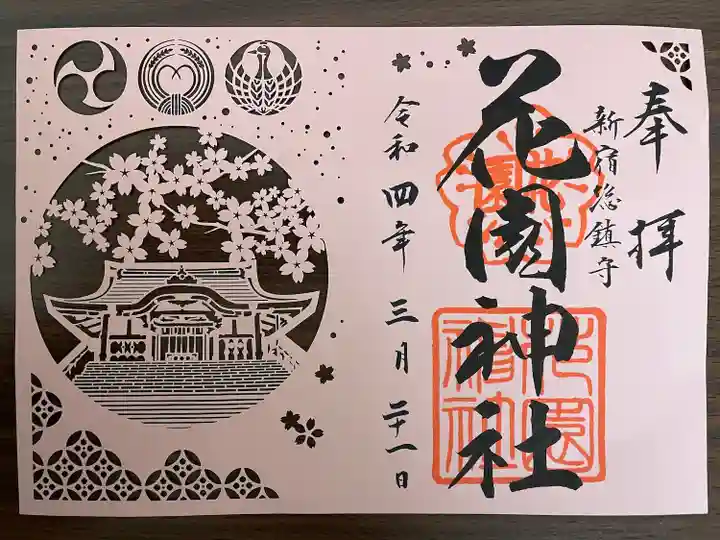 奉拝
新宿総鎮守
花園神社
令和四年三月二十一日
花園神社